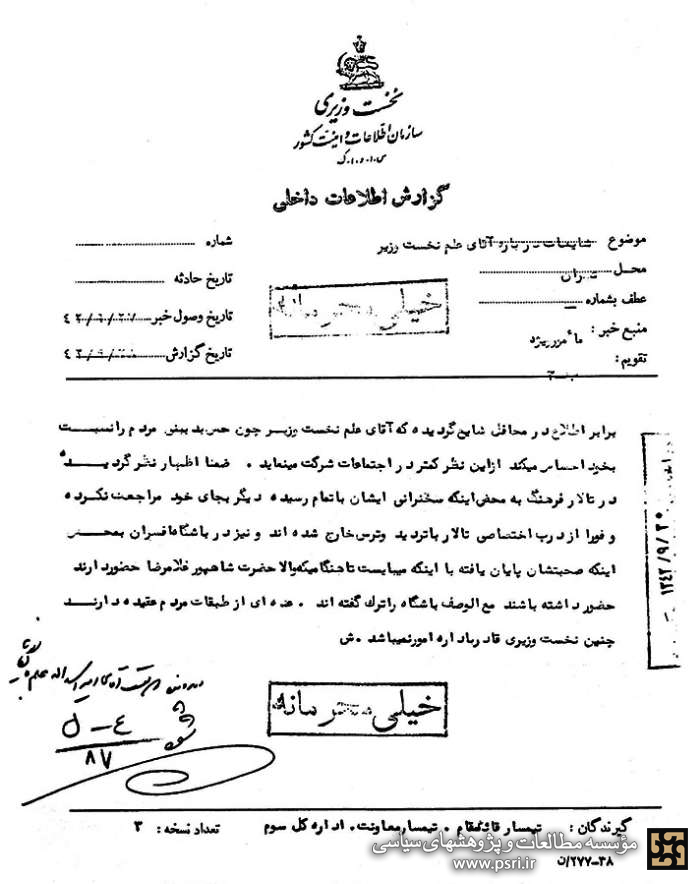 نخست وزیری
سازمان اطلاعات و امنیت کشور
س.ا.و.ا.ک
گزارش اطلاعات داخلی
موضوع شایعات درباره آقای علم نخست وزیر
شماره
محل تهران
تاریخ حادثه
عطف بشماره
تاریخ وصول خبر
منبع خبر: مأمور ویژه
تاریخ گزارش
تقویم:
خیلی محرمانه
برابر اطلاع در محافل شایع گردیده که آقای علم نخست وزیر چون حس بدبینی مردم را نسبت
بخود احساس میکند ازاین نظر کمتر در اجتماعات شرکت مینماید . ضمنا اظهار نظر گردیده
در تالار فرهنگ به محض اینکه سخنرانی ایشان باتمام رسیده دیگر بجای خود مراجعت نکرده
و فورا از درب اختصاصی تالار باتردید وترس خارج شده اند و نیز در باشگاه افسران بمحض
اینکه صحبتشان پایان یافته با اینکه میبایست تاهنگامیکه والا حضرت شاهپور غلامرضا حضور دارند
حضور داشته باشند مع الوصف باشگاه راترک گفته اند . عده ای از طبقات مردم عقیده دارند
چنین نخست وزیری قادر باداره امور نمیباشد .ش
۱۳۴۲/۹/۳۰
خیلی محرمانه
۵-۴
۸۷
گیرندگان: تیمسار قائممقام . تیمسار معاونت . اداره کل سوم
تعداد نسخه: ۳
مؤسسه مطالعات و پژوهشهای سیاسی
www.psri.ir
۳۸-۲۷۷/ن